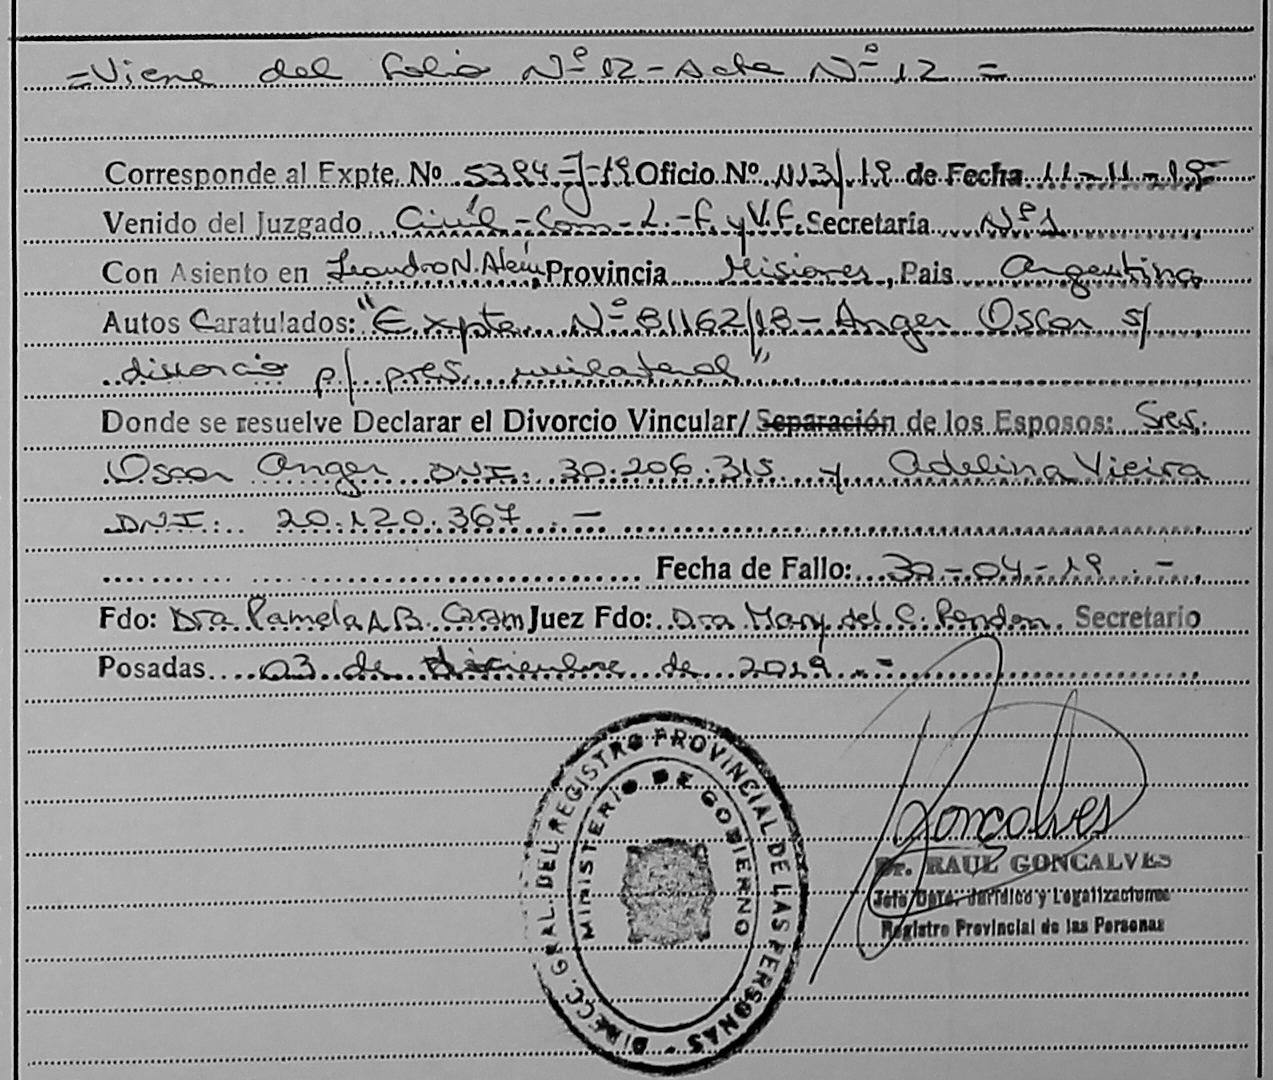 =Viene del folio Nº 02-Acta Nº 12=
Corresponde al Expte. Nº 5394-J-19 Oficio Nº 1113/19 de Fecha 11-11-19
Venido del Juzgado Civil-Com-L.-F. y V.F. Secretaría Nº 1
Con Asiento en Leandro N. Alem Provincia Misiones, Pais Argentina
Autos Caratulados: "Expte. Nº 81162/18-Anger Oscar s/
divorcio p/ pres. unilateral"
Donde se resuelve Declarar el Divorcio Vincular/ Separación de los Esposos: Sres.
Oscar Anger DNI: 30.206.315 y Adelina Vieira
DNI: 20.120.367.-
Fecha de Fallo: 30-04-19.-
Fdo: Dra. Pamela A B. Juez Fdo: Dra Mary del C. Pendon. Secretario
Posadas 03 de diciembre de 2019.-
DIRECC. GRAL. DEL REGISTRO PROVINCIAL DE LAS PERSONAS -
MINISTERIO DE GOBIERNO
Goncalves
Dr. RAUL GONCALVES
Jefe Dpto. Jurídico y Legalizaciones
Registro Provincial de las Personas